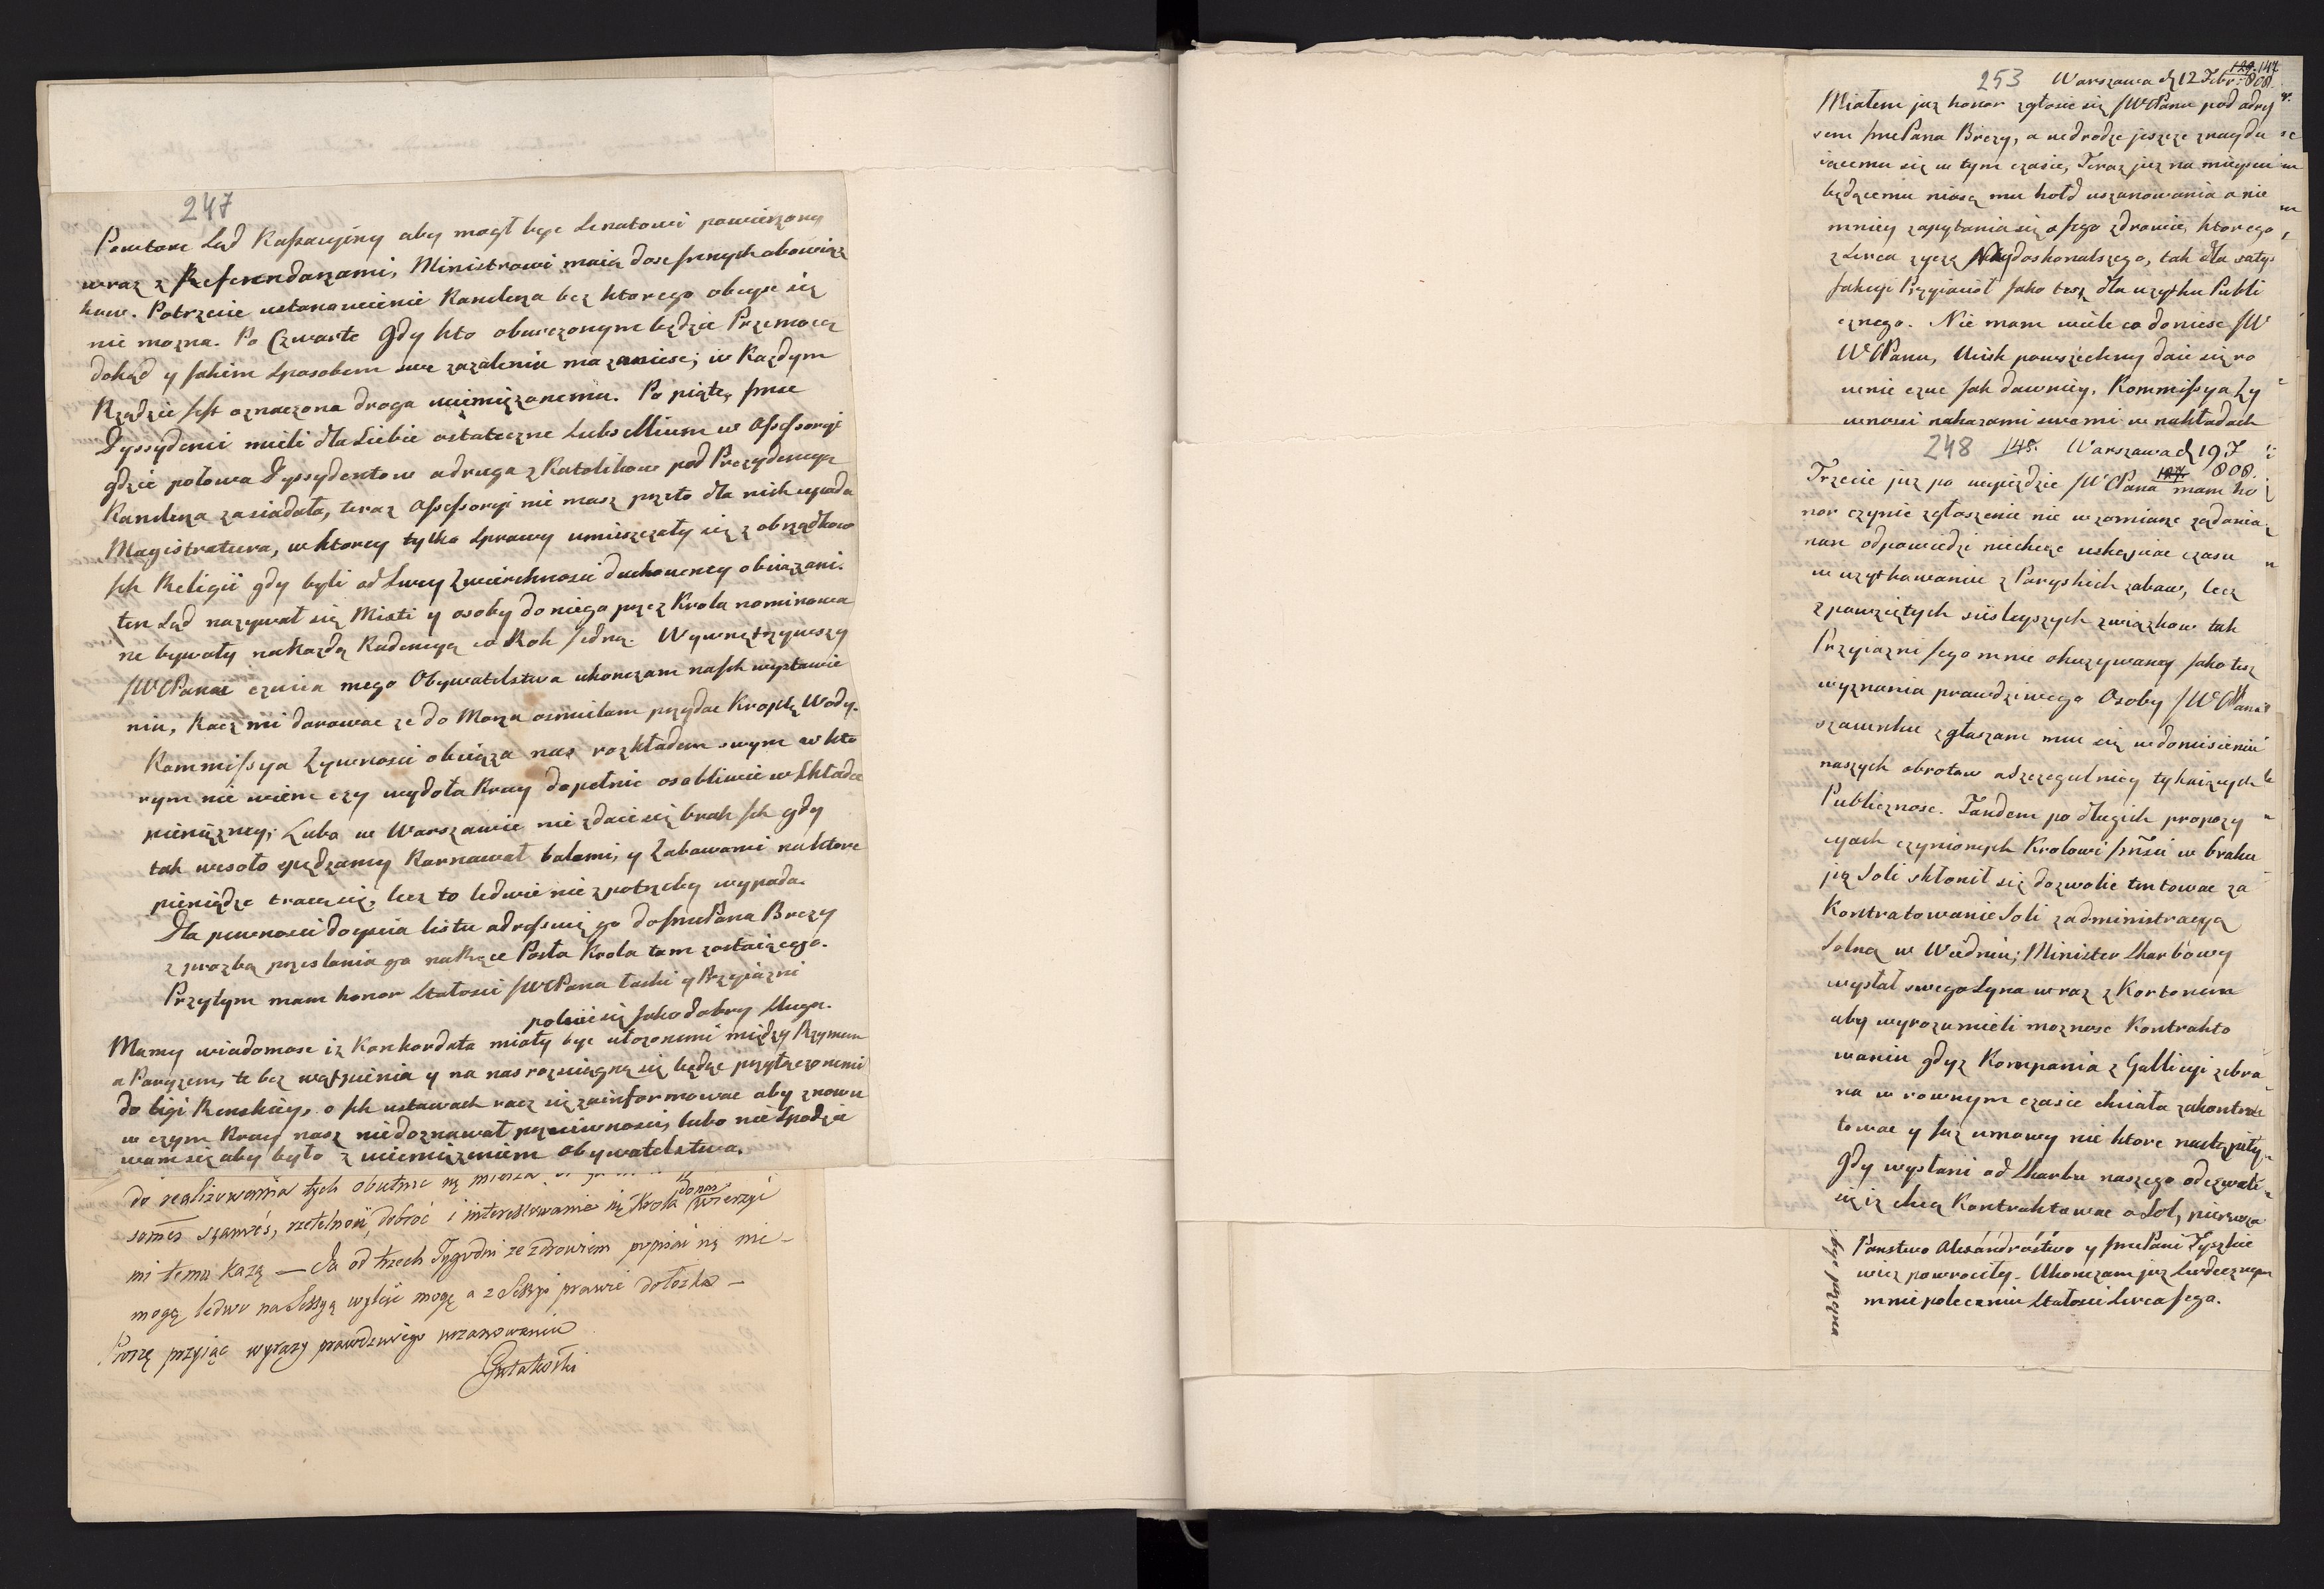 247
Powtore Sąd Kassacyiny aby mogł bydz Senatowi powierzony
wraz z Referendarzami, Ministrowi maią dosc innych obowiąz
kow. Potrzecie ustanowienie Kanclerza bez ktorego obeyse się
nie mozna. Po Czwarte Gdy kto obarczonym będzie Przemocą
dokąd y Jakim Sposobem swe zazalenie ma zaniesc; w Kazdym
Rządzie Jest oznaczona droga uciemięzonemu. Po piąte, Jmse
Dyssydenci mieli dla Siebie ostateczne Subsellium w Assessoryi
gdzie połowa Dyssydentow a druga z Katolikow pod Prezydencyą
Kanclerza zasiadała, teraz Assessoryi nie masz przeto dla nich upada
Magistratura, w ktorey tylko Sprawy umieszczały się z obrządkow
Ich Religii gdy byli od Swey Zwierchnosci duchowney obciązani.
ten Sąd nazywał się Mixti y osoby do niego przez Krola nominowa
ne bywały na Kazdą Kadencyą co Rok Jedną. Wywnętrzywszy
JWWPanu czucia mego Obywatelstwa ukonczam na Ich wystawie
niu, Racz mi darowac ze do Morza osmielam przydac Kroplę Wody.
Kommissya Zywnosci obciąza nas rozkładem swym w kto
rym nie wiem czy wydoła Kray dopełnic osobliwie w Składce
pienięzney; Lubo w Warszawie nie zdaie się brak Ich gdy
tak wesoło spędzamy Karnawał balami, y Zabawami na ktore
pieniądze tracą się, lecz to ledwie nie z potrzeby wypada.
Dla pewnosci doyscia listu adressuię go do JmcPana Brezy
z prozbą przesłania go na Ręce Posła Krola tam zostaiącego.
Przytym mam honor Stałosci JWWPana łaski y Przyiazni
polecic się Jako dobry Sługa.
Mamy wiadomosc iz Konkordata miały byc ułozonemi między Rzymem
a Paryzem, te bez wątpienia y na nas rozciągną się będąc przyłączonemi
do ligi Renskiey, o Ich ustawach racz się zainformowac aby znowu
w czym Kray nasz niedoznawał przeciwnosci, lubo nie Spodzie
wam się aby było z uciemięzeniem Obywatelstwa.
do realizowania tych obietnic
szanować, rzetelność, dobroć i interessowanie się Krola do nas wierzyć
mi temu każą — Ja od trzech Tygodni ze zdrowiem popisać się nie-
mogę ledwo na Sessyą wyleźć mogę a z Sessyi prawie do łożka —
Proszę przyiąć wyrazy prawdziwego uszanowania
Gutakowski
253 Warszawa d. 12 Febr: 808. 129. 147
Miałem juz honor zgłosic się JWWPanu pod adres
sem JmcPana Brezy, a w drodze jeszcze znaydu
iącemu się w tym czasie, Teraz juz na mieyscu
będącemu niosą mu hołd uszanowania a nie
mniey zapytania się o Jego zdrowie, ktorego
z Serca zyczę Naydoskonalszego, tak dla satys
fakcyi Przyiacioł Jako tesz dla uzytku Publi
cznego. Nie mam wiele co doniesc JW
WPanu, Ucisk powszechny daie się ro
wnie czuc Jak dawniey, Kommissya Zy
wnosci nakazami swemi w nakładach
248 148. Warszawa d. 19 J
127. 808.
Trzecie juz po wyieździe JWWPana mam ho
nor czynic zgłoszenie nie w zamiarze ządania
nan odpowiedzi niechcąc uskąpiac czasu
w uzytkowaniu z Paryskich zabaw, lecz
z powziętych sciesleyszych związkow tak
Przyiazni Jego mnie okazywaney Jako tesz
wyznania prawdziwego Osoby JWWPana
szacunku zgłaszam mu się w doniesieniu
naszych obrotow a szczegulniey tykaiących
Publicznosc. Tandem po długich propozy
cyach czynionych Krolowi Jmsci w braku
ją Soli skłonił się dozwolic tentowac za
Kontratowanie Soli z administracyą
Solną w Wiedniu; Minister Skarbowy
wysłał swego Syna wraz z Kortonem
aby wyrozumieli moznosc Kontrakto
wania gdyz Kompania z Gallicyi zebra
na w rownym czasie chciała zakontrak
towac y Juz umowy nie ktore nastąpiły.
Gdy wysłani od Skarbu naszego odezwali
się iz chcą Kontraktowac o Sol, pierwsza
Panstwo Alexandrostwo y JmcPani Tyszkie
wicz powrociły. Ukonczam juz Serdecznym
mnie poleceniu Stałosci Serca Jego.